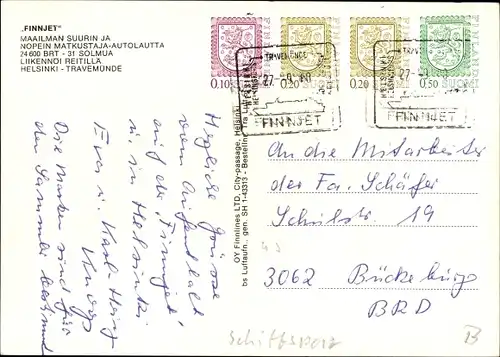 „FINNJET"
MAAILMAN SUURIN JA
NOPEIN MATKUSTAJA-AUTOLAUTTA
24 600 BRT - 31 SOLMUA
LIIKENNÖI REITILLÄ
HELSINKI - TRAVEMÜNDE
0.10
0.20
0.20
SUOMI
0.50
TRAVEMÜNDE
HELSINKI
FINNJET
FINNJET
OY Finnlines LTD, City-passage, Helsinki
bs Luftaufn., gen. SH 1-43313 - Bestellnr.
Herzliche Grüsse
vom Aufenthalt
auf der "Finnjet"
u. in Helsinki
Eva u. Karl-Heinz
Die Marken sind für
den Sammler bestimmt
An die Mitarbeiter
der Fa. Schäfer
Schulstr. 19
3062 Bückeburg
BRD
Schiffspost
B